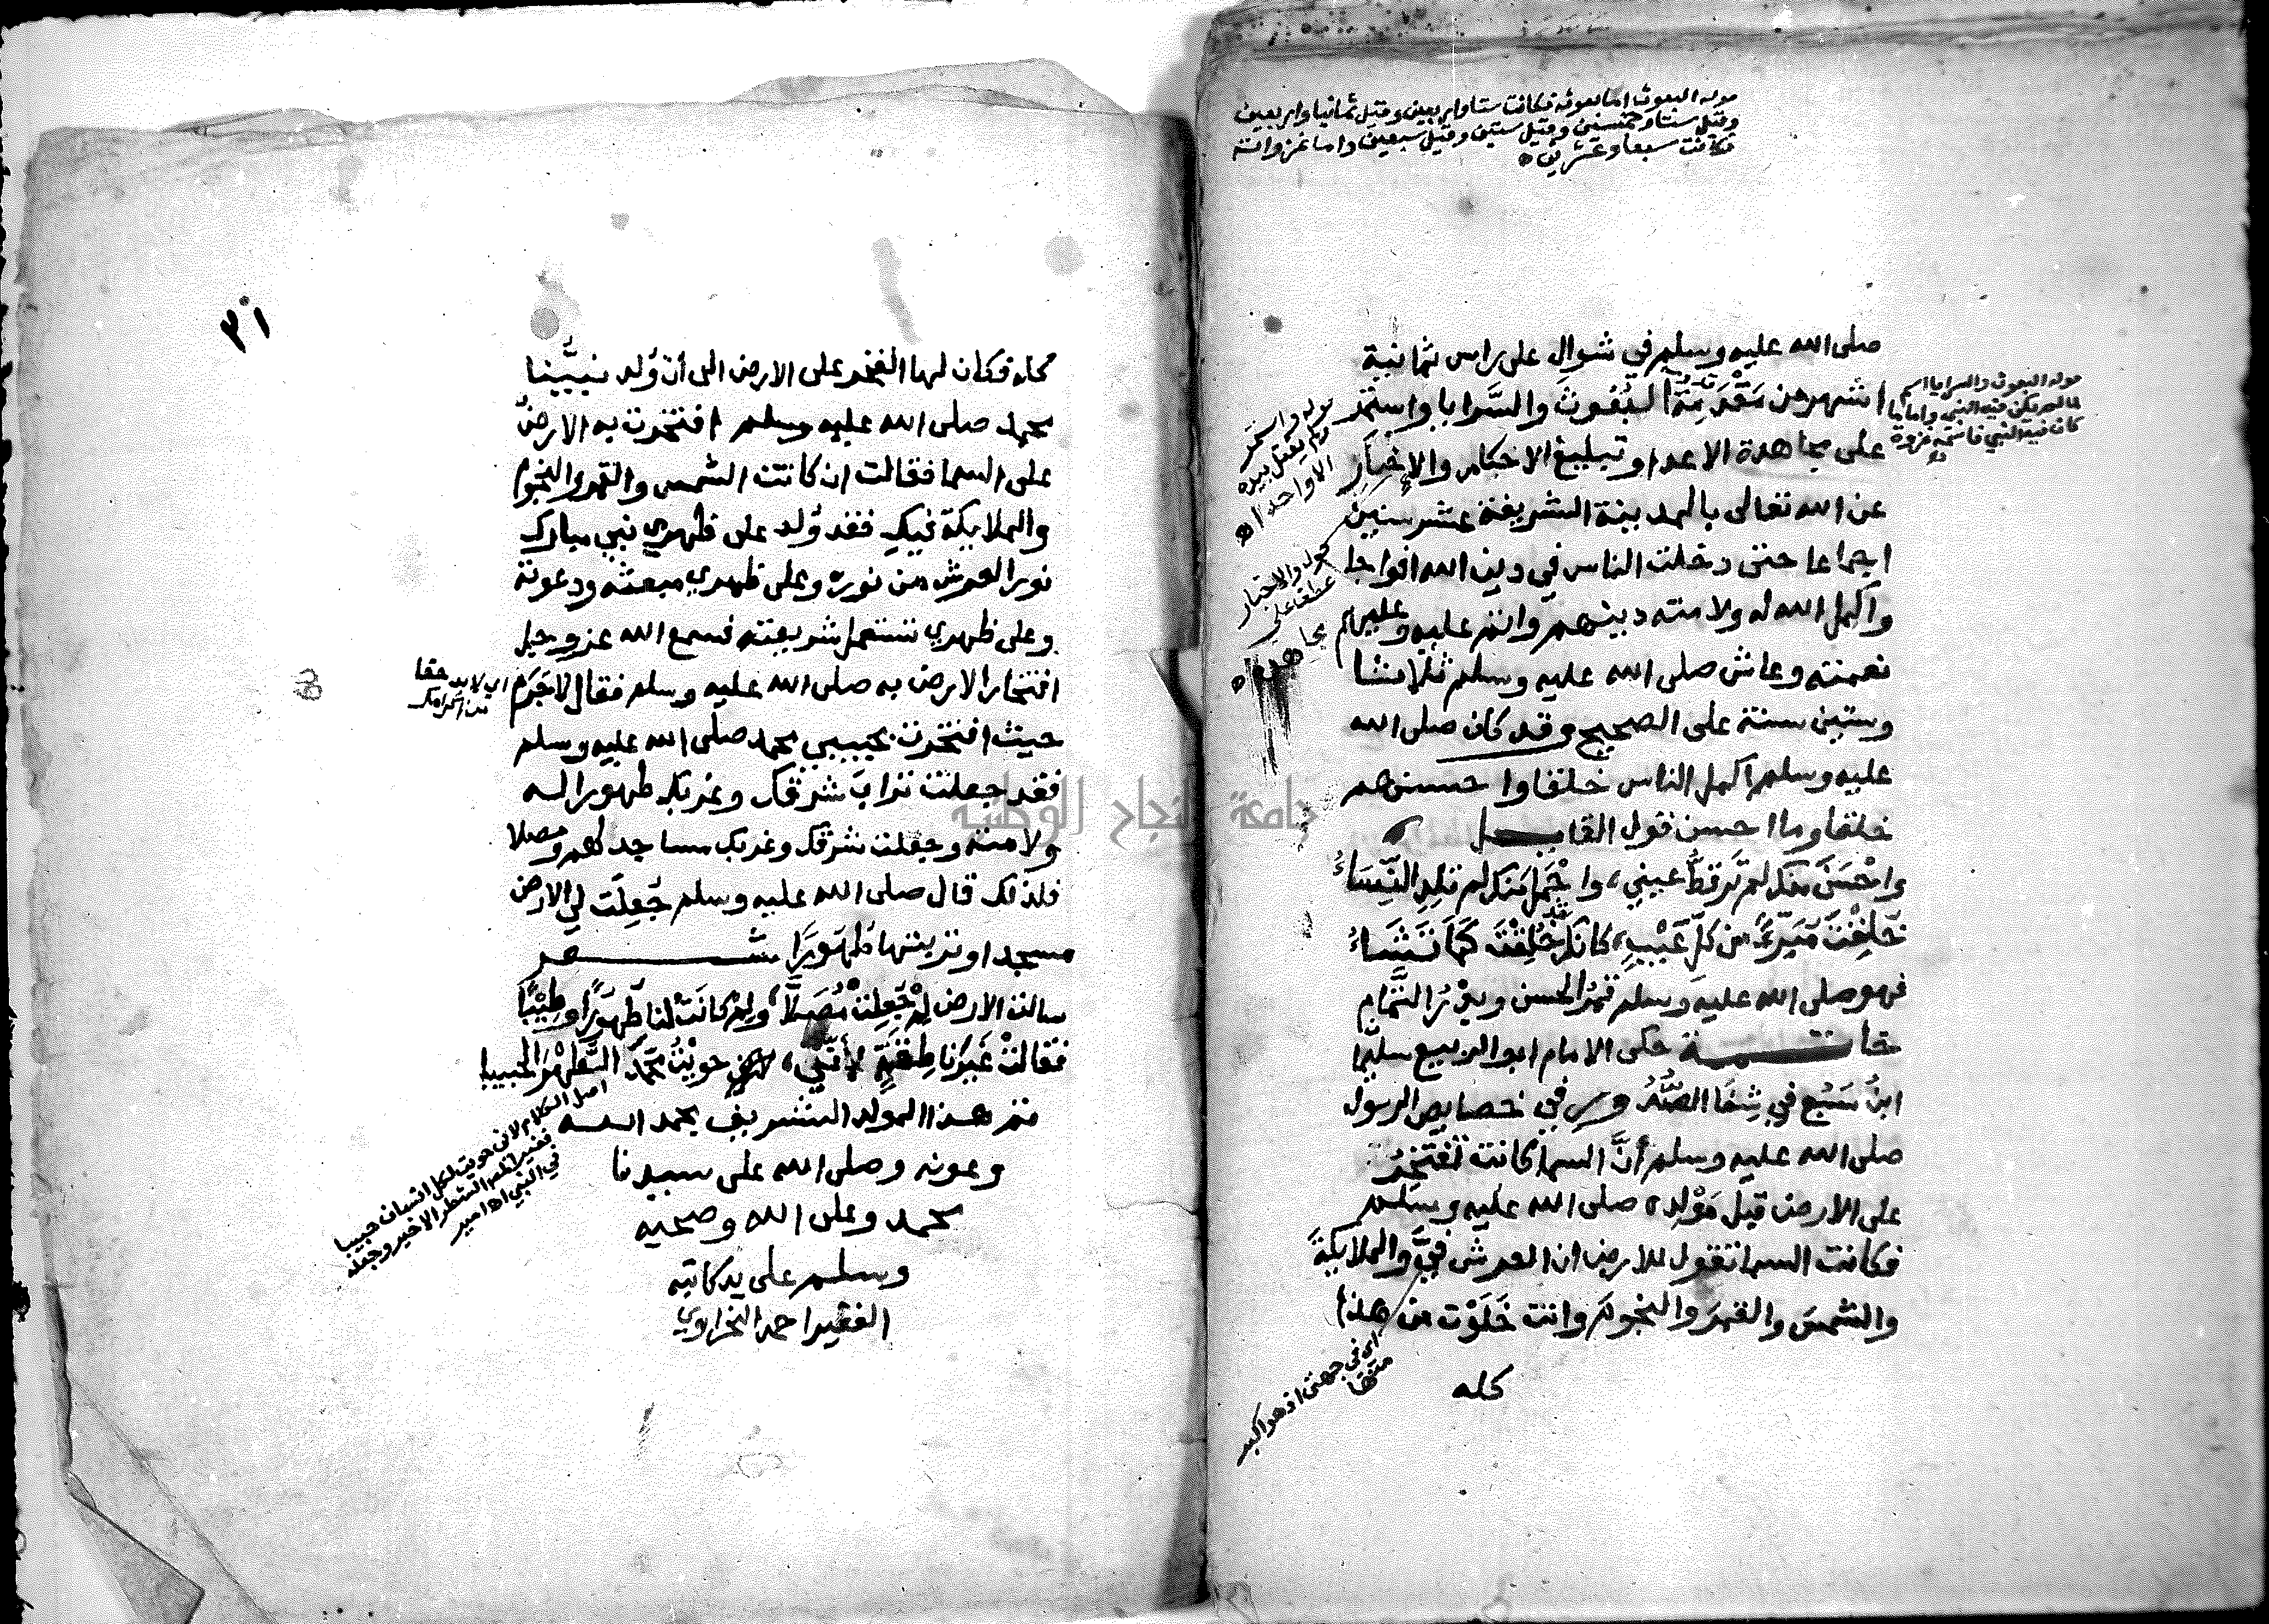 قوله البعوث اما بعوثه فكانت ستا واربعين وقيل ثمانيا واربعين
وقيل ستا وخمسين وقيل ستين وقيل سبعين واما غزواته
فكانت سبعا وعشرين اه
صلى الله عليه وسلم في شوال على راس ثمانية
اشهر من مَقْدَمِهِ البُعُوثَ والسَّرايا واستمر
على مجاهدة الاعدا وتبليغ الاحكام والاِخبارِ
عن الله تعالى بالمدينة الشريفة عشر سنين
اجماعا حتى دخلت الناس في دين الله افواجا
واكمل الله له ولامته دينهم واتم عليه وعليهم
نعمته وعاش صلى الله عليه وسلم ثلاثا
وستين سنة على الصحيح وقد كان صلى الله
عليه وسلم اكمل الناس خلقا واحسنهم
خلقا وما احسن قول القايل
واحْسَنَ منك لم تَرَ قطُّ عيني، واجْمَلَ منك لم تلِدِ النِّسَاءُ
خُلِقْتَ مُبَرَّءً من كلِّ عَيْبٍ، كانك قد خُلِقْتَ كَمَا تَشَاءُ
فهو صلى الله عليه وسلم قمرُ الحسن وبدْرُ التَّمَامِ
خاتمة حكى الامام ابو الربيع سليمان
ابنُ سَبُع في شِفَا الصُّدُور في خصايص الرسول
صلى الله عليه وسلم أنَّ السما كانت تفتخرُ
على الارض قبل مَوْلِدِه صلى الله عليه وسلم
فكانت السما تقول للارض ان العرش فيَّ والملايكةَ
والشمسَ والقمرَ والنجومَ وانت خَلَوْتِ من هذا
كله
قوله البعوث والسرايا اسم
لما لم يكن فيه النبي واما ما
كان فيه النبي فاسمه غزوة
قوله واستمر
ولم يقتل بيده
الا واحدا اه
قوله والاخبار
عطفا على
مجاهدة اه
اي في جهتي اذ هو اكبر
منها
٣١
كله فكان لها الفخر على الارض الى أن وُلد نبيُّنا
محمد صلى الله عليه وسلم افتخرت به الارضُ
على السما فقالت ان كانت الشمس والقمر والنجوم
والملايكة فيكِ فقد وُلد على ظهري نبي مبارك
نور العرش من نوره وعلى ظهري مبعثه ودعوته
وعلى ظهري تستعمل شريعته فسمع الله عز وجل
افتخار الارض به صلى الله عليه وسلم فقال لا جَرَمَ
اي لا بد حقا
من اكرامك
حيث افتخرت بحبيبي محمد صلى الله عليه وسلم
فقد جعلت ترابَ شرقك وغربك طهورا له
ولامته وجعلت شرقك وغربك مساجد لهم ومصلا
فلذلك قال صلى الله عليه وسلم جُعِلَت لي الارض
مسجدا وتربتها طَهورًا شعر
سالت الارض لِمْ جُعِلتْ مُصَلًّا، ولِمْ كانَتْ لنا طَهورًا وطِيْبًا
فقالتْ غَيرَ ناطقةٍ لأنِّي، حويْتُ محمَّد الطُّهْرَ الحبيبا
تم هذا المولد الشريف بحمد الله
وعونه وصلى الله على سيدنا
محمد وعلى اله وصحبه
وسلم على يد كاتبه
الفقير احمد النحراوي
اصل الكلام لاني حويت لكل انسان حبيبا
فغير الشطر الاخير وجعله
في النبي اه امير
جامعة النجاح الوطنية